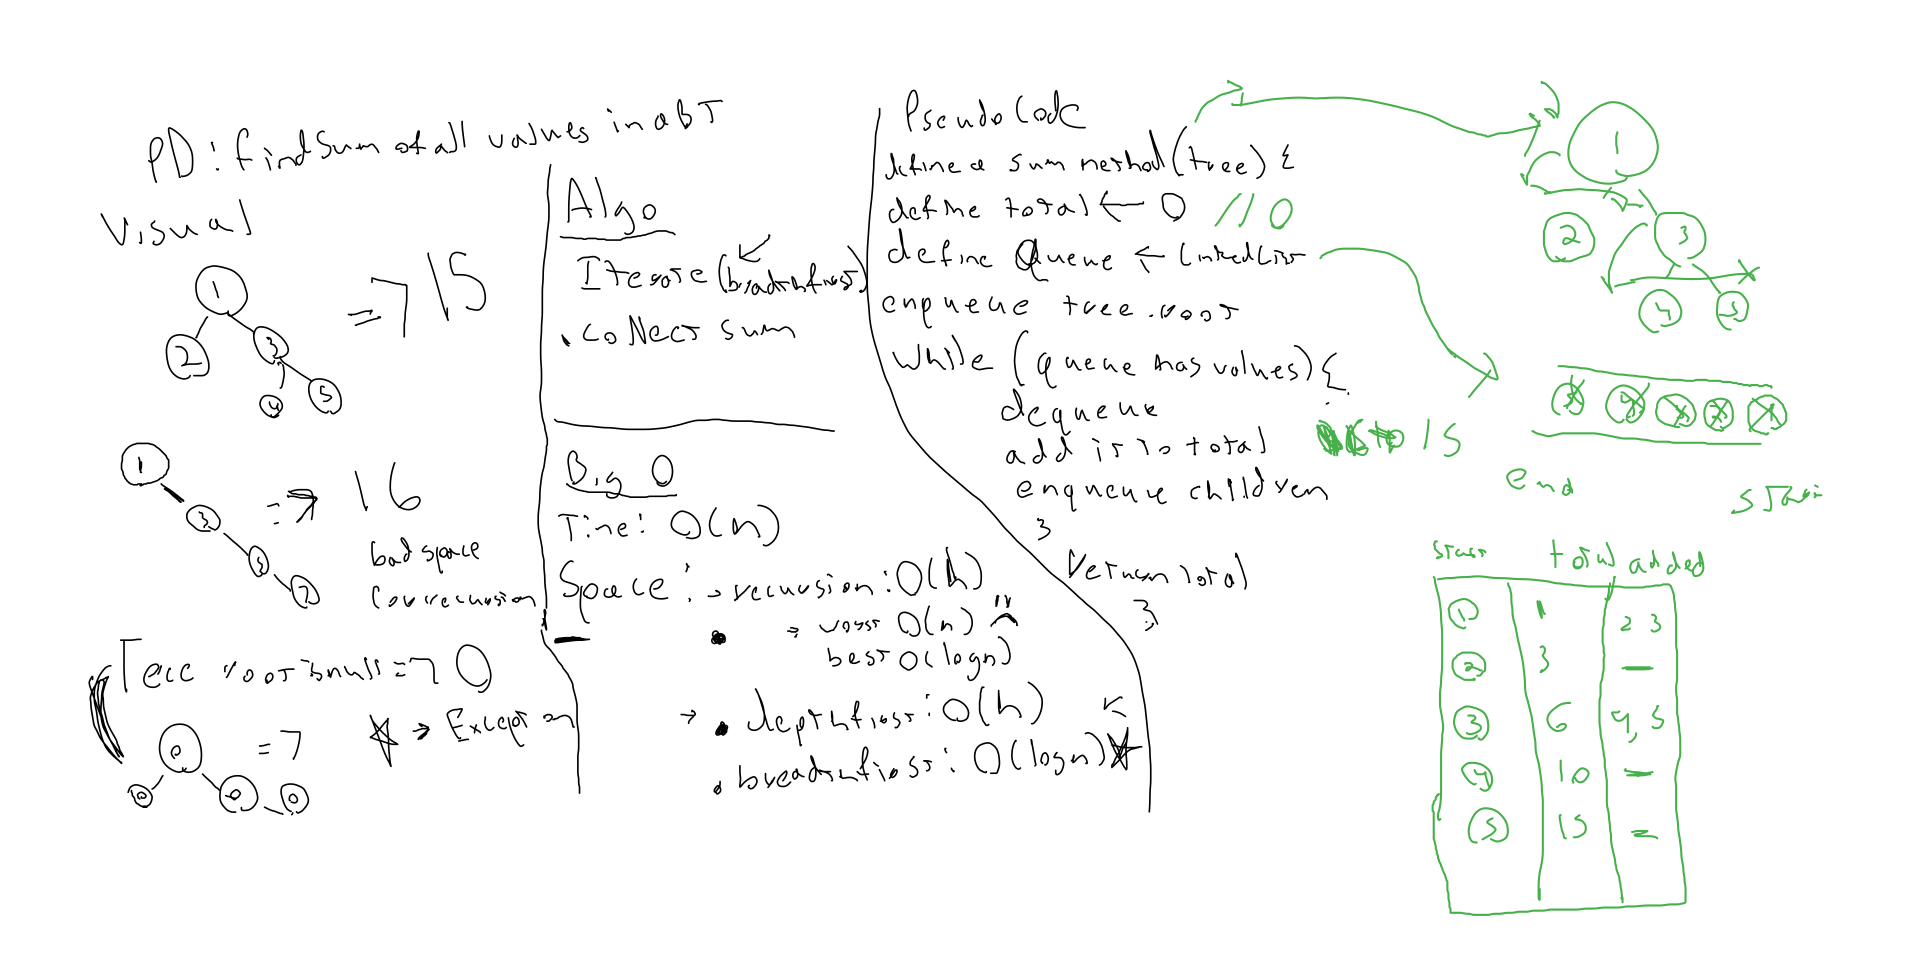 PD: find Sum of all values in a BT
Visual
1
2
3
4
5
=> 15
1
3
5
7
=> 16
bad space
for recursion
root is null => 0
0
10
0
0
=>
→ Exception
Algo
Iterate (breadth first)
. collect sum
Big O
Time: O(n)
Space: → recursion: O(h)
→ worst O(n)
best O(logn)
→ . depth first: O(h)
. breadth first: O(logn)
Pseudo Code
define a sum method (tree) {
define total ← 0 // 0
define Queue ← Linked List
enqueue tree.root
while (queue has values) {
dequeue
add it to total 15
enqueue children
}
return total
}
1
2
3
4
5
5 4 3 2 1
end
start total added
1 1 2 3
2 3 —
3 6 4, 5
4 10 —
5 15 —